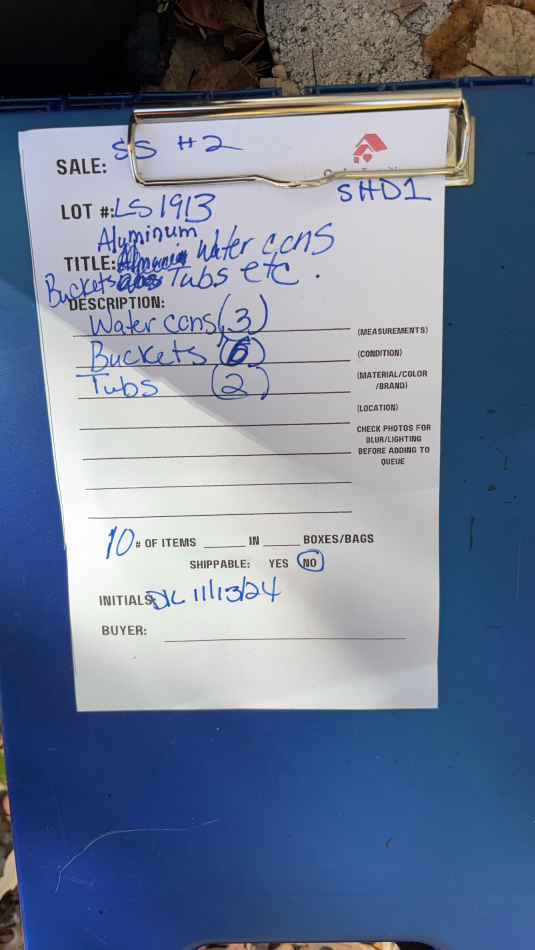 SALE: SS #2
SHD1
LOT #: LS1913
Aluminum
TITLE: Water cans
Buckets Tubs etc.
DESCRIPTION:
Water cans (3)
(MEASUREMENTS)
Buckets (6)
(CONDITION)
Tubs (2)
(MATERIAL/COLOR
/BRAND)
(LOCATION)
CHECK PHOTOS FOR
BLUR/LIGHTING
BEFORE ADDING TO
QUEUE
10 # OF ITEMS ____ IN ____ BOXES/BAGS
SHIPPABLE: YES NO
INITIALS: DK 11/13/24
BUYER: